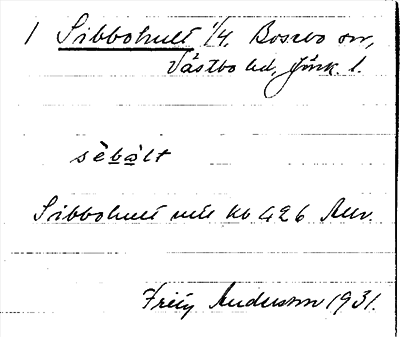 1 Sibbohult 1/4. Bosebo sn,
Västbo hd, Jönk. l.
sèbàlt
Sibbohult mtl kb 426 Allm.
Fritz Anderson 1931.